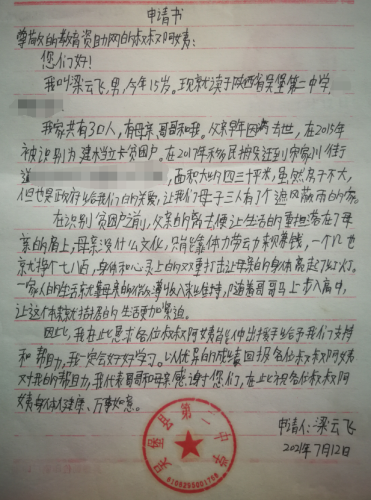 申请书
尊敬的教育资助网的叔叔阿姨:
您们好!
我叫梁云飞,男,今年15岁。现就读于陕西省吴堡第二中学,
我家共有3口人,有母亲,哥哥和我。父亲早年因病去世,在2015年
被识别为建档立卡贫困户。在2017年移民搬迁到宋家川街
道,面积大约四三十平米,虽然房子不大,
但也是政府给我们的关爱,让我们母子三人有了个遮风蔽雨的家。
在识别贫困户之前,父亲的离去便让生活的重担落在了母
亲的肩上,母亲没什么文化,只能靠体力劳动来挣钱,一个人也
就挣个七八百,身体和心灵上的双重打击让母亲的身体亮起了红灯。
一家人的生活就靠母亲的微薄收入来维持,随着哥哥马上步入高中,
让这个本就拮据的生活更加窘迫。
因此,我在此恳求各位叔叔阿姨能伸出援手给予我们支持
和帮助,我一定会好好学习。以优异的成绩回报各位叔叔阿姨
对我的帮助,我代表哥哥和母亲感谢您们,在此祝各位叔叔阿
姨身体健康、万事如意。
申请人:梁云飞
2021年7月12日
吴堡县第二中学